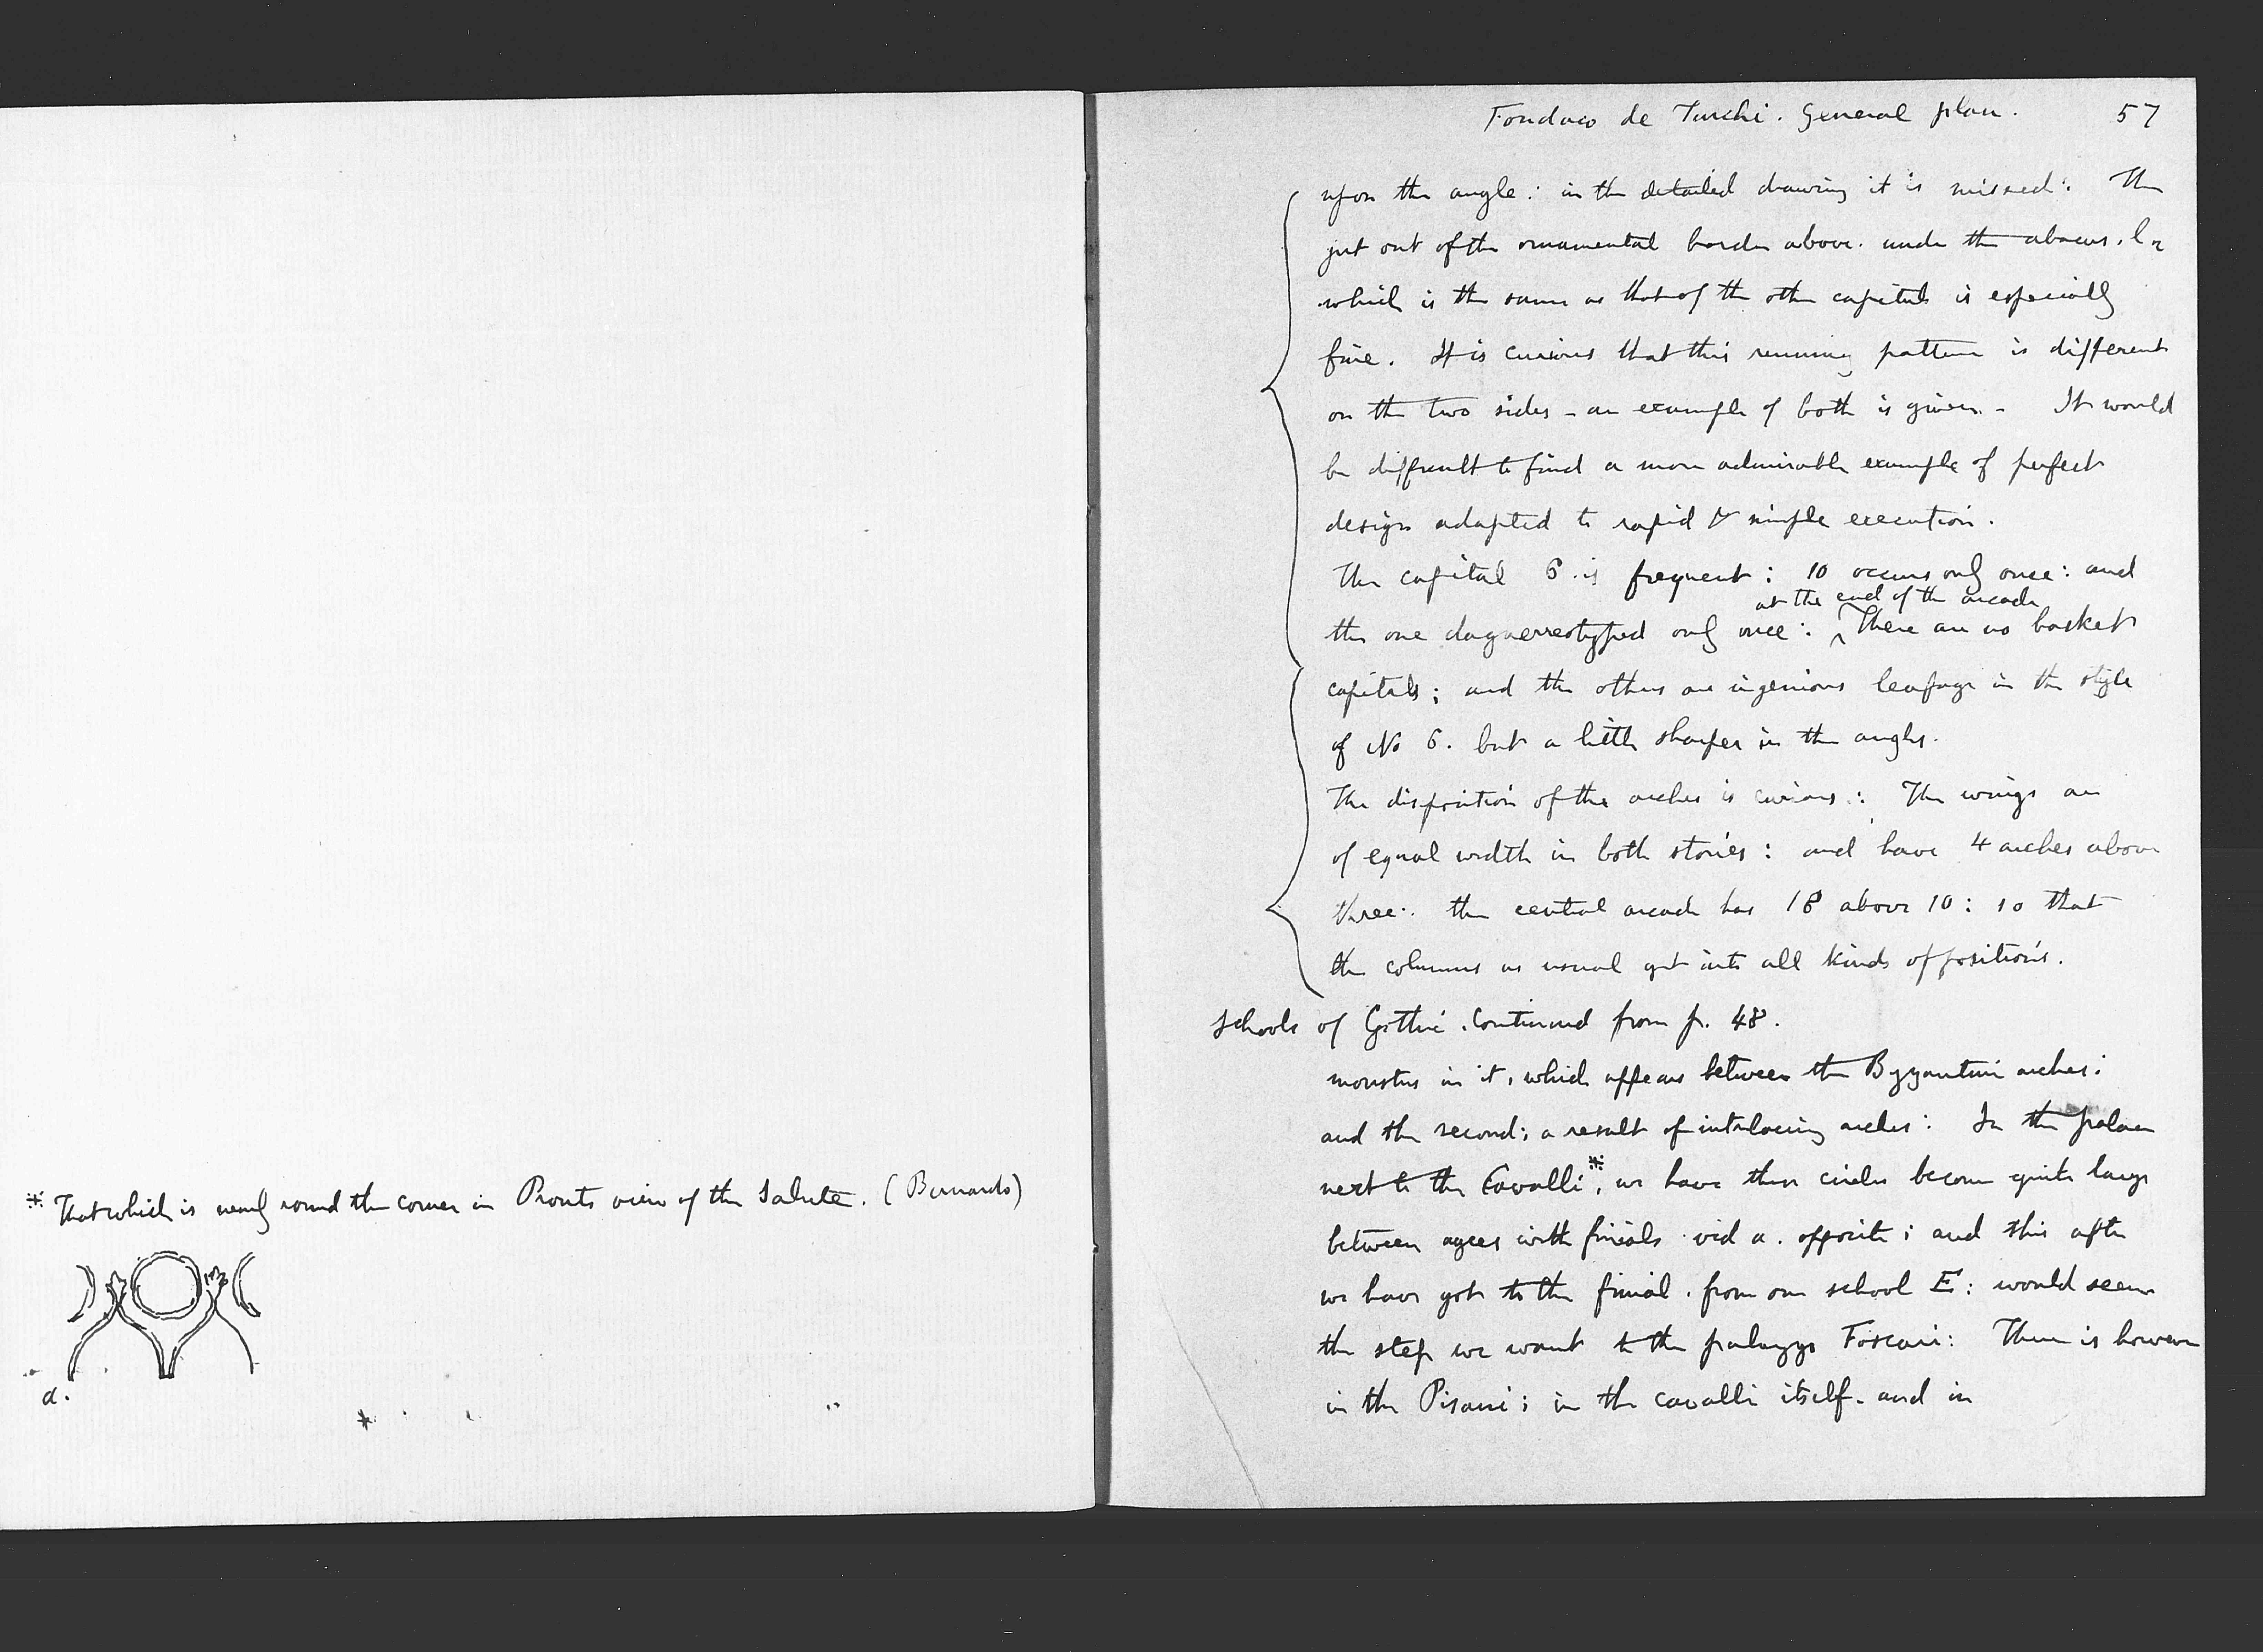 * That which is nearly round the corner in Prouts view of the Salute. (Bernardo)
a.
Fondaco de Turchi. General plan. 57
upon the angle: in the detailed drawing it is missed: The
jut out of the ornamental border above. under the abacus.
which is the same as that of the other capitals is especially
fine. It is curious that this running pattern is different
on the two sides - an example of both is given - It would
be difficult to find a more admirable example of perfect
design adapted to rapid & simple execution.
The capital 6 is frequent: 10 occurs only once: and
at the end of the arcade
the one daguerreotyped only once: ^ There are no basket
capitals; and the others are ingenious leafage in the style
of No 6. but a little sharper in the angles.
The disposition of the arches is curious: The wings are
of equal width in both stories: and have 4 arches above
three: the central arcade has 18 above 10: so that
the columns as usual get into all kinds of positions.
Schools of Gothic. Continued from p. 48.
monsters in it, which appears between the Byzantine arches:
and the second; a result of interlacing arches: In the palace
next to the Cavalli*, we have these circles become quite large
between ogees with finials vid a. opposite; and this after
we have got to the finial. from our school E: would seem
the step we want to the palazzo Foscari: There is however
in the Pisani; in the cavalli itself. and in